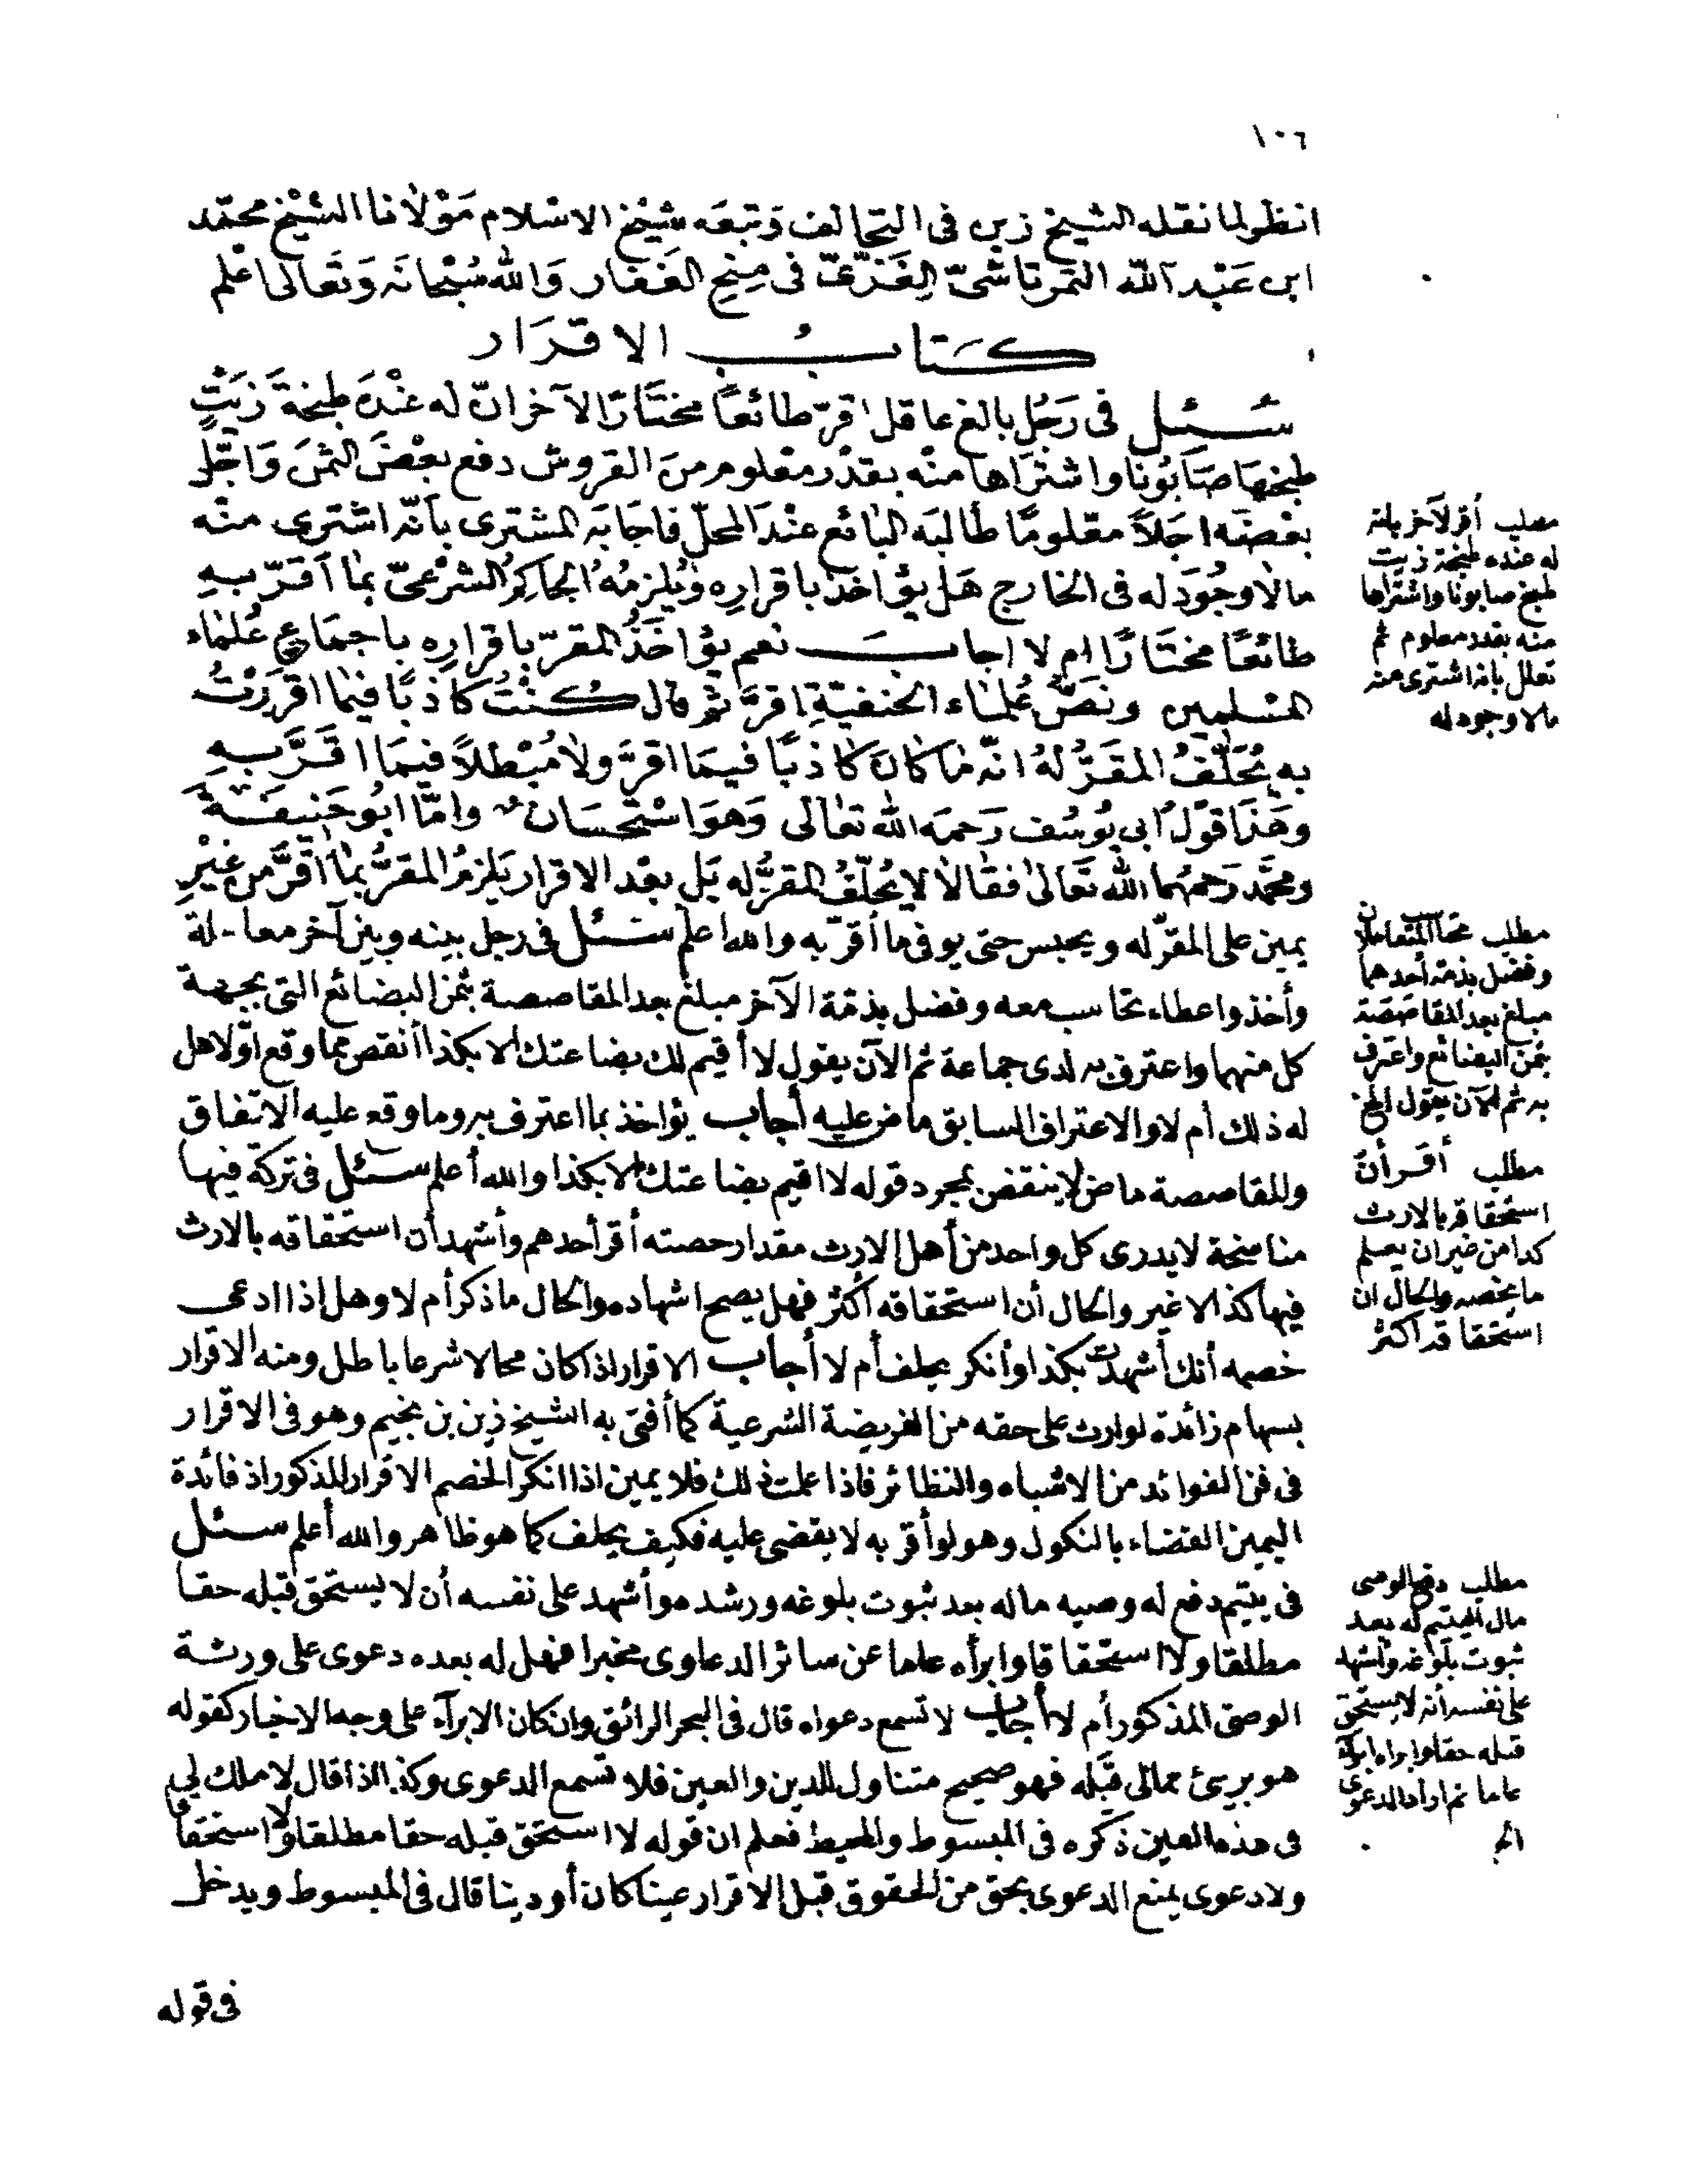 ١٠٦
انظر لما نقله الشيخ زين فى التحالف وَتبعَه شيْخ الاسْلام مَوْلَانا الشيْخ محمّد
ابن عَبْد اللّه التمرتاشىّ الغَزّىّ فى مِنح الغَفار وَالله سُبْحانَه وَتَعالى اعْلم
كتابُ الاقرَار
سُئل فى رَجُل بالغ عاقل اقرّ طائعًا مختَارًا لآخر انّ له عنْدَه طبخة زَيتٍ
طبخهَا صَابُونا واشتراها منْه بقدْر معْلوم من القروش دفع بعْضَ الثمن وَاجّل
بعْضَه اجَلاً معْلومًا طَالبَه البَائع عنْدَ المحلّ فاجَابَه المشترى بأنّه اشترى منْه
مالا وجُودَ له فى الخارج هَل يؤاخذ باقرارِه وَيُلزمُه الحاكِم الشرْعىّ بمَا أقرّ بهِ
طائعًا مختَارًا ام لا اجابَ نعم يؤاخَذ المقرّ باقرارِه باجمَاع عُلمَاء
المسْلمين ونَصّ عُلمَاء الحنفيّة اقرَّ ثم قال كُنْتُ كاذبًا فيمَا اقرَرْتُ
به يُحَلَّفُ المقَرُّ لهُ انّه مَا كانَ كاذبًا فيمَا اقرَّ ولا مُبْطلاً فيمَا اقَرَّ بهِ
وهَذَا قوْلُ ابى يُوسُف رَحمَه الله تعَالى وَهوَ اسْتحْسَانٌ وامّا ابُو حَنيفَة
ومحمَّد رَحمَهُما الله تَعَالى فقَالا لا يُحلّفُ المقرُّ له بَل بعْد الاقرار يَلزمُ المقرُّ بمَا اقرَّ من غيْرِ
يمين على المقرّ له ويحبس حتى يوفى ما أقرّ به والله اعلم سئل فى رجل بينه وبين آخر معاملة
وأخذ واعطاء تحاسب معه وفضل بذمّة الآخر مبلغ بعد المقاصصة بثمن البضائع التى بجهة
كل منهما واعترف به لدى جماعة ثم الآن يقول لا أقيم لك بضاعتك الا بكذا أنقص مما وقع اوّلا هل
له ذلك أم لا والاعتراف السابق ماض عليه أجاب يؤاخذ بما اعترف به وما وقع عليه الاتفاق
والمقاصصة ماض لا ينتقض بمجرد قوله لا اقيم بضاعتك الا بكذا والله أعلم سئل فى تركة فيها
مناسخة لا يدرى كل واحد من أهل الارث مقدار حصته أقر أحدهم وأشهد أن استحقاقه بالارث
فيها كذا لا غير والحال أن استحقاقه أكثر فهل يصح اشهاده والحال ما ذكر أم لا وهل اذا ادعى
خصمه أنك أشهدت بكذا وأنكر يحلف أم لا أجاب الاقرار اذا كان محالا شرعا باطل ومنه الاقرار
بسهام زائدة لوارث على حقه من الفريضة الشرعية كما أفتى به الشيخ زين بن نجيم وهو فى الاقرار
فى فن الفوائد من الاشباه والنظائر فاذا علمت ذلك فلا يمين اذا انكر الخصم الاقرار المذكور اذ فائدة
اليمين القضاء بالنكول وهو لو أقر به لا يقضى عليه فكيف يحلف كما هو ظاهر والله أعلم سئل
فى يتيم دفع له وصيه ماله بعد ثبوت بلوغه ورشده وأشهد على نفسه أن لا يستحق قبله حقا
مطلقا ولا استحقاقا وابرأه عاما عن سائر الدعاوى مخبرا فهل له بعده دعوى على ورثة
الوصى المذكور أم لا أجاب لا تسمع دعواه قال فى البحر الرائق وان كان الابرآء على وجه الاخبار كقوله
هو برىء ممالى قبَله فهو صحيح متناول للدين والعين فلا تسمع الدعوى وكذا اذا قال لا ملك لى
فى هذه العين ذكره فى المبسوط والمحيط فعلم ان قوله لا استحق قبله حقا مطلقا ولا استحقاقا
ولا دعوى يمنع الدعوى بحق من الحقوق قبل الاقرار عينا كان أو دينا قال فى المبسوط ويدخل
فى قوله
مطلب أقر لآخر بانه
له عنده طبخة زيت
طبخ صابونا واشتراها
منه بقدر معلوم ثم
تعلل بانه اشترى منه
مالا وجود له
مطلب تحاسب المتعاملان
وفضل بذمة أحدهما
مبلغ بعد المقاصَصَة
بثمن البضائع واعترف
به ثم الآن يقول الخ
مطلب أقر أن
استحقاقه بالارث
كذا من غير ان يعلم
ما يخصه والحال ان
استحقاقه اكثر
مطلب دفع الوصى
مال اليتيم له بعد
ثبوت بلوغه وأشهد
على نفسه أنه لا يستحق
قبله حقا وابراه ابراء
عاما ثم اراد الدعوى
الخ